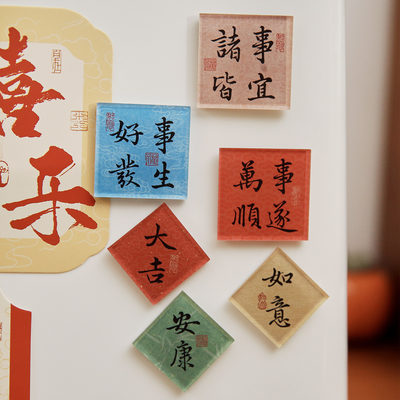 喜
乐
諸事
皆宜
好事
發生
萬事
順遂
大
吉
如
意
安
康